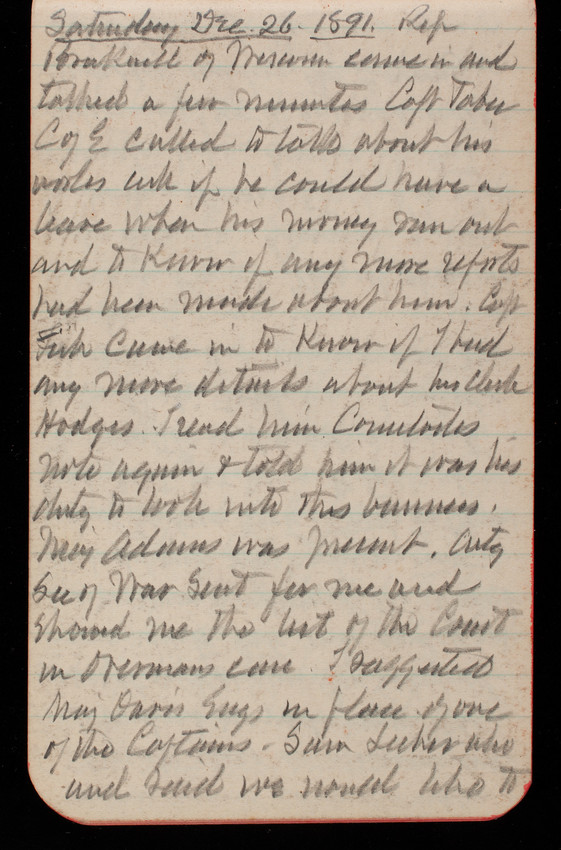 Saturday Dec. 26. 1891. Rep
of Wisconsin came in and
talked a few minutes Capt Taber
C of E called to talk about his
ask if he could have a
leave when his money ran out
and to know if any more reports
had been made about him. Capt
came in to know if I had
any more details about his Clerk
Hodges. I read him Comstocks
note again & told him it was his
duty to look into this business.
Maj Adams was present. Actg
Sec of War sent for me and
showed me the list of the Court
in Overmans case I suggested
Maj Davis Engs in place of one
of the Captains - Saw also
and said we would like to